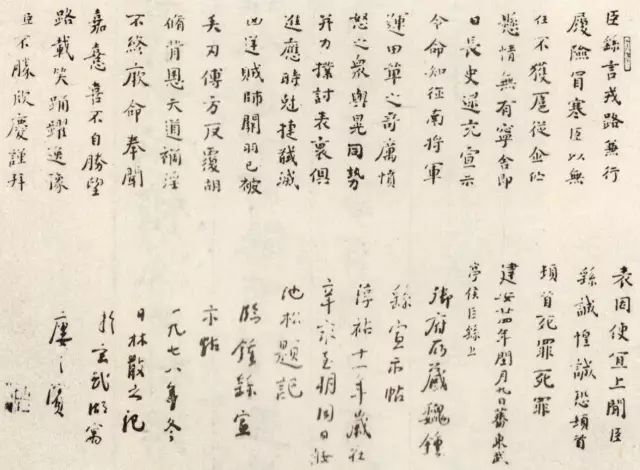 臣繇言戎路兼行
履險冒寒臣以無
任不獲扈從企佇
懸情無有寧舍即
日長史逯充宣示
令命知征南將軍
運田單之奇厲憤
怒之眾與晃同勢
并力撲討表裏俱
進應時尅捷馘滅
凶逆賊帥關羽已被
矢刃傅方反覆胡
脩背恩天道禍淫
不終厥命奉聞
嘉憙喜不自勝望
路載笑踊躍逸豫
臣不勝欣慶謹拜
表因便宜上聞臣
繇誠惶誠恐頓首
頓首死罪死罪
建安廿四年閏月九日蕃東武
亭侯臣繇上
御府所藏魏鍾
繇宣示帖
淳祐十一年歲社
辛亥至明同日
池松題記
臨鍾繇宣
示帖
一九七八年冬
日林散之記
於玄武湖